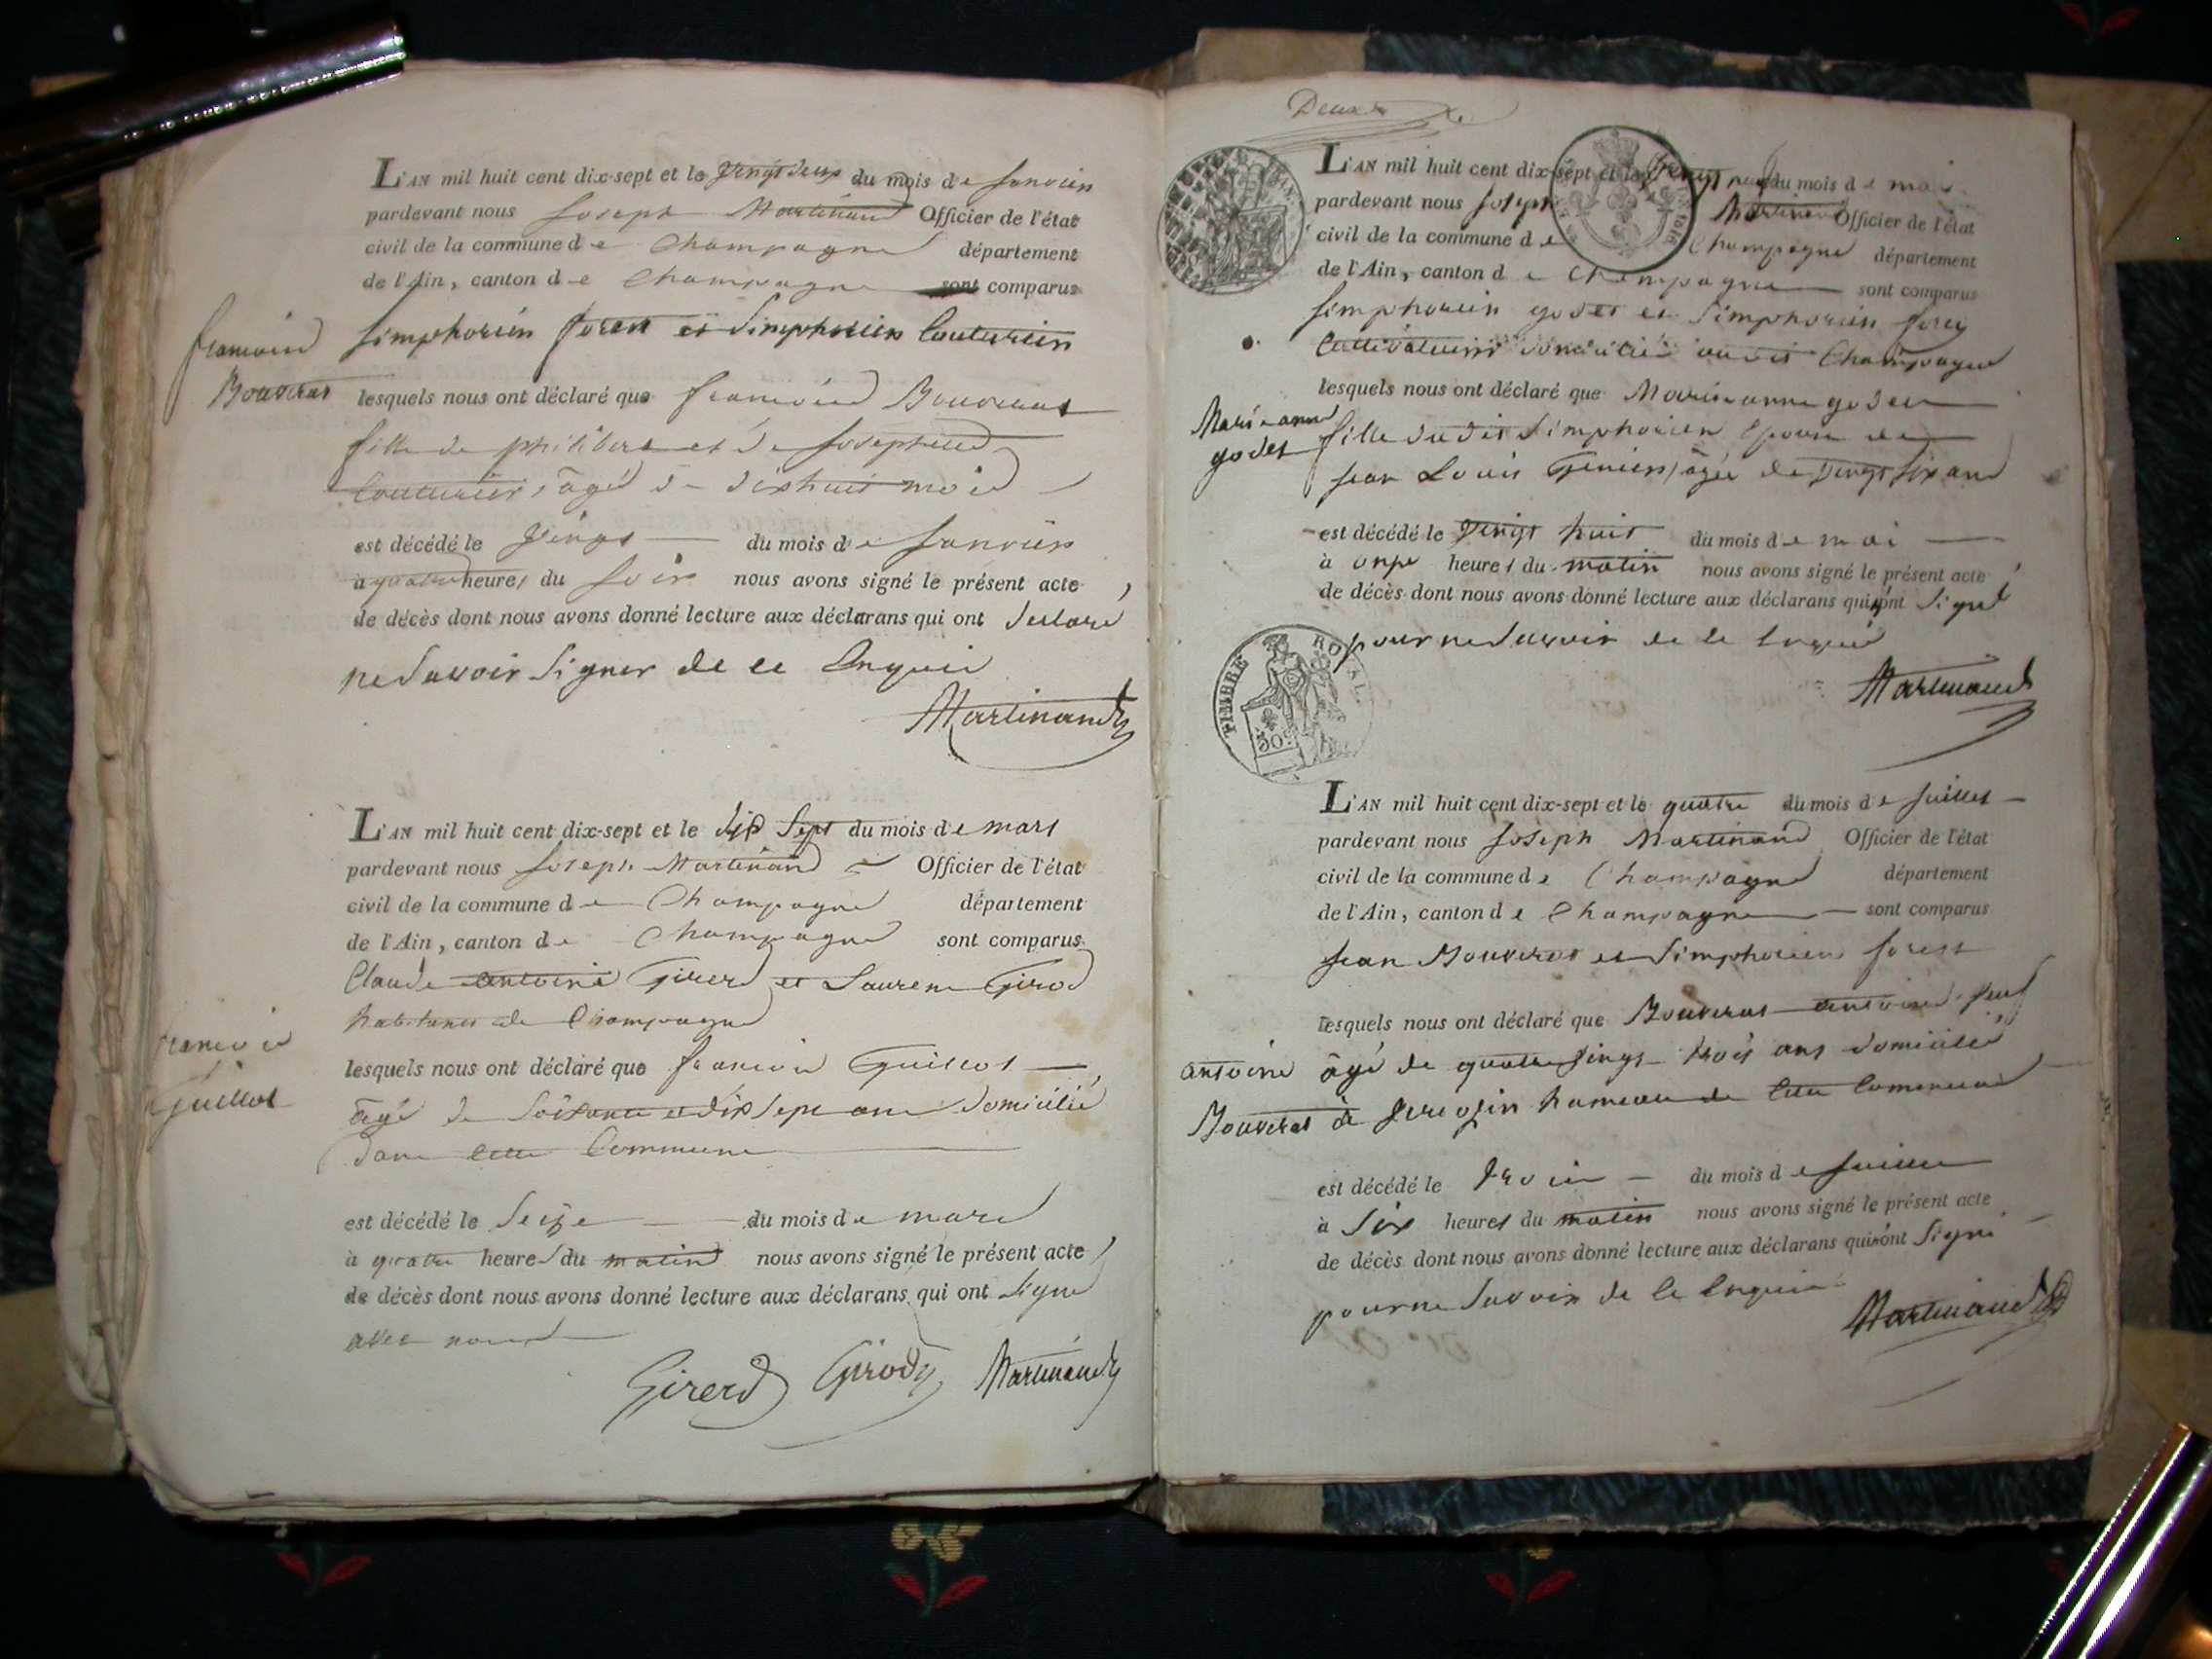 L'AN mil huit cent dix-sept et le vingt deux du mois de janvier
pardevant nous joseph Martinand Officier de l'état
civil de la commune de Champagne département
de l'Ain, canton de Champagne sont comparus
simphorien forest et simphorien Couturier
francoise
Bouveras
lesquels nous ont déclaré que francoise Bouveras
fille de philibert et de josephte
Couturier, âgé de dixhuit mois
est décédé le vingt du mois de janvier
à quatre heures du soir nous avons signé le présent acte
de décès dont nous avons donné lecture aux déclarans qui ont declaré
ne savoir signer de ce Enquis
Martinand
L'AN mil huit cent dix-sept et le dix sept du mois de mars
pardevant nous joseph Martinand Officier de l'état
civil de la commune de Champagne département
de l'Ain, canton de Champagne sont comparus
Claude antoine Girerd et Laurent Girod
habitants de Champagne
francois
Guillot
lesquels nous ont déclaré que francois Guillot
âgé de soixante et dix sept ans domicilié
dans cette Commune
est décédé le seize du mois de mars
à quatre heures du matin nous avons signé le présent acte
de décès dont nous avons donné lecture aux déclarans qui ont signé
avec nous
Girerd Girod Martinand
Deux
L'AN mil huit cent dix-sept et le vingt neuf du mois de mai
pardevant nous joseph Martinand Officier de l'état
civil de la commune de Champagne département
de l'Ain, canton de Champagne sont comparus
simphorien godet et simphorien forest
Cultivateurs domiciliés audit Champagne
lesquels nous ont déclaré que Marieanne godet
Marieanne
godet
fille dudit simphorien Epouse de
jean Louis Genier, âgée de vingt six ans
est décédé le vingt huit du mois de mai
à onze heures du matin nous avons signé le présent acte
de décès dont nous avons donné lecture aux déclarans qui n'ont signé
pour ne savoir de ce Enquis
TIMBRE ROYAL
50c
Martinand
L'AN mil huit cent dix-sept et le quatre du mois de juillet
pardevant nous joseph Martinand Officier de l'état
civil de la commune de Champagne département
de l'Ain, canton de Champagne sont comparus
jean Bouveras et simphorien forest
lesquels nous ont déclaré que Bouveras antoine
antoine
Bouveras
âgé de quatre vingt trois ans domicilié
à hameau de cette Commune
est décédé le trois du mois de juillet
à six heures du matin nous avons signé le présent acte
de décès dont nous avons donné lecture aux déclarans qui n'ont signé
pour ne savoir de ce Enquis
Martinand